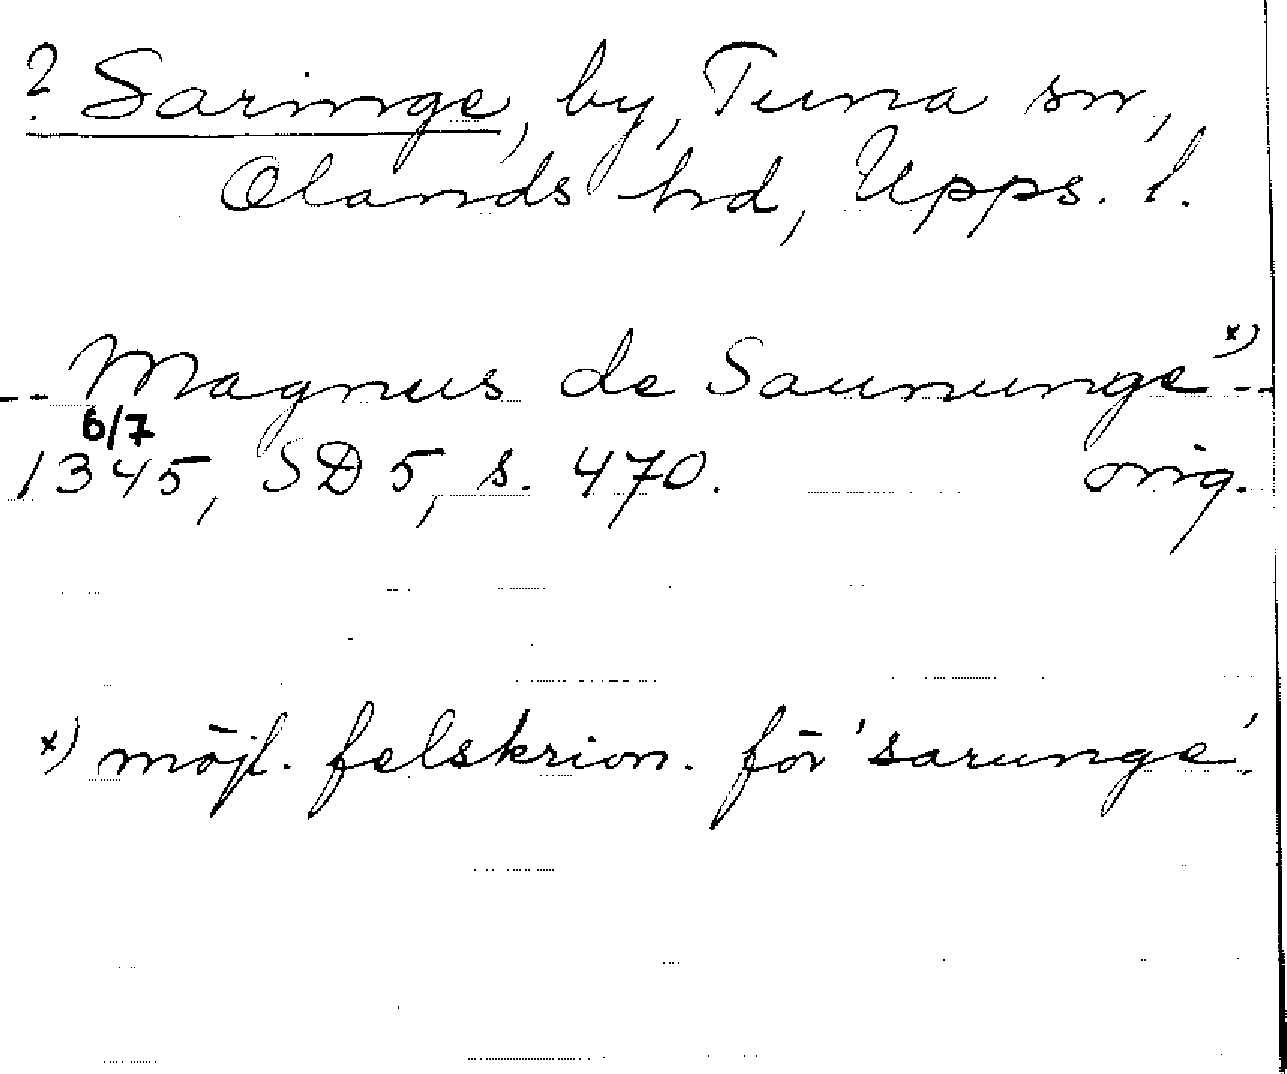 ? Saringe, by, Tuna sn,
Olands hd, Upps. l.
-- Magnus de Saununge x) --
6/7
1345, SD 5, s. 470. orig.
x) möjl. felskrivn. för 'sarunge'.